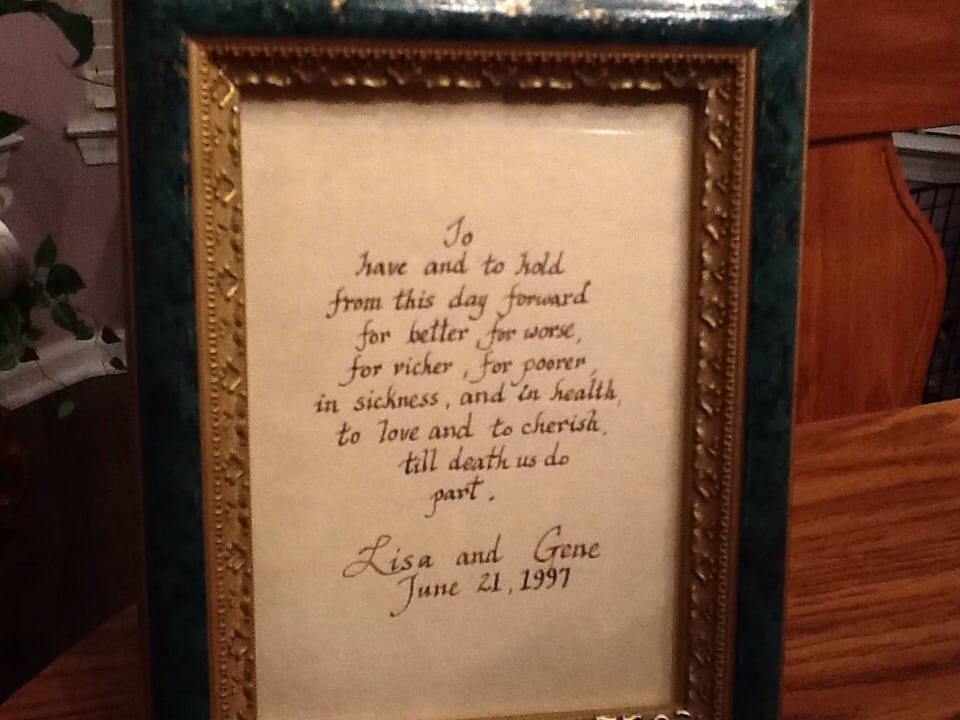 To
have and to hold
from this day forward
for better, for worse,
for richer, for poorer,
in sickness, and in health,
to love and to cherish,
till death us do
part.
Lisa and Gene
June 21, 1997